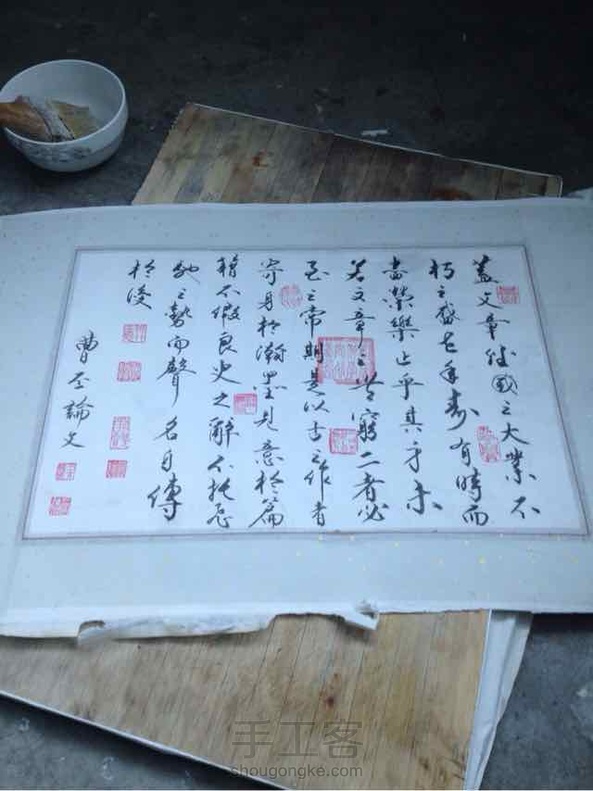 蓋文章經國之大業不
朽之盛事年壽有時而
盡榮樂止乎其身未
若文章之無窮二者必
至之常期是以古之作者
寄身於翰墨見意於篇
籍不假良史之辭不托飛
馳之勢而聲名自傳
於後
曹丕論文
手工客
shougongke.com